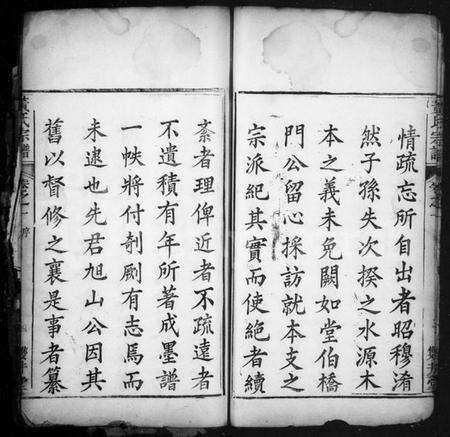 情疏忘所自出者昭穆淆
然子孫失次揆之水源木
本之義未免闕如堂伯橋
門公留心採訪就本支之
宗派紀其實而使絕者續
紊者理俾近者不疏遠者
不遺積有年所著成墨譜
一帙將付剞劂有志焉而
未逮也先君旭山公因其
舊以督修之襄是事者纂
氏宗譜
卷之一
序